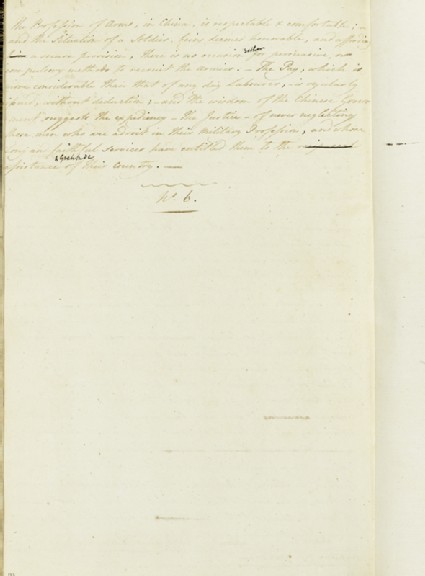 the Profession of Arms, in China, is respectable & comfortable; –
and the Situation of a Soldier, being deemed honorable, and affording
him a secure provision, there is no occasion either for persuasive, nor
compulsory methods to recruit the armies. – The Pay, which is
more considerable than that of any day Labourer, is regularly
issued, without deduction; – and the wisdom of the Chinese Govern-
ment suggests the expediency – the Justice – of never neglecting
those men who are adroit in their Military Profession, and whose
long and faithful services have entitled them to the
& Gratitude
assistance of their Country. —
No. 6.